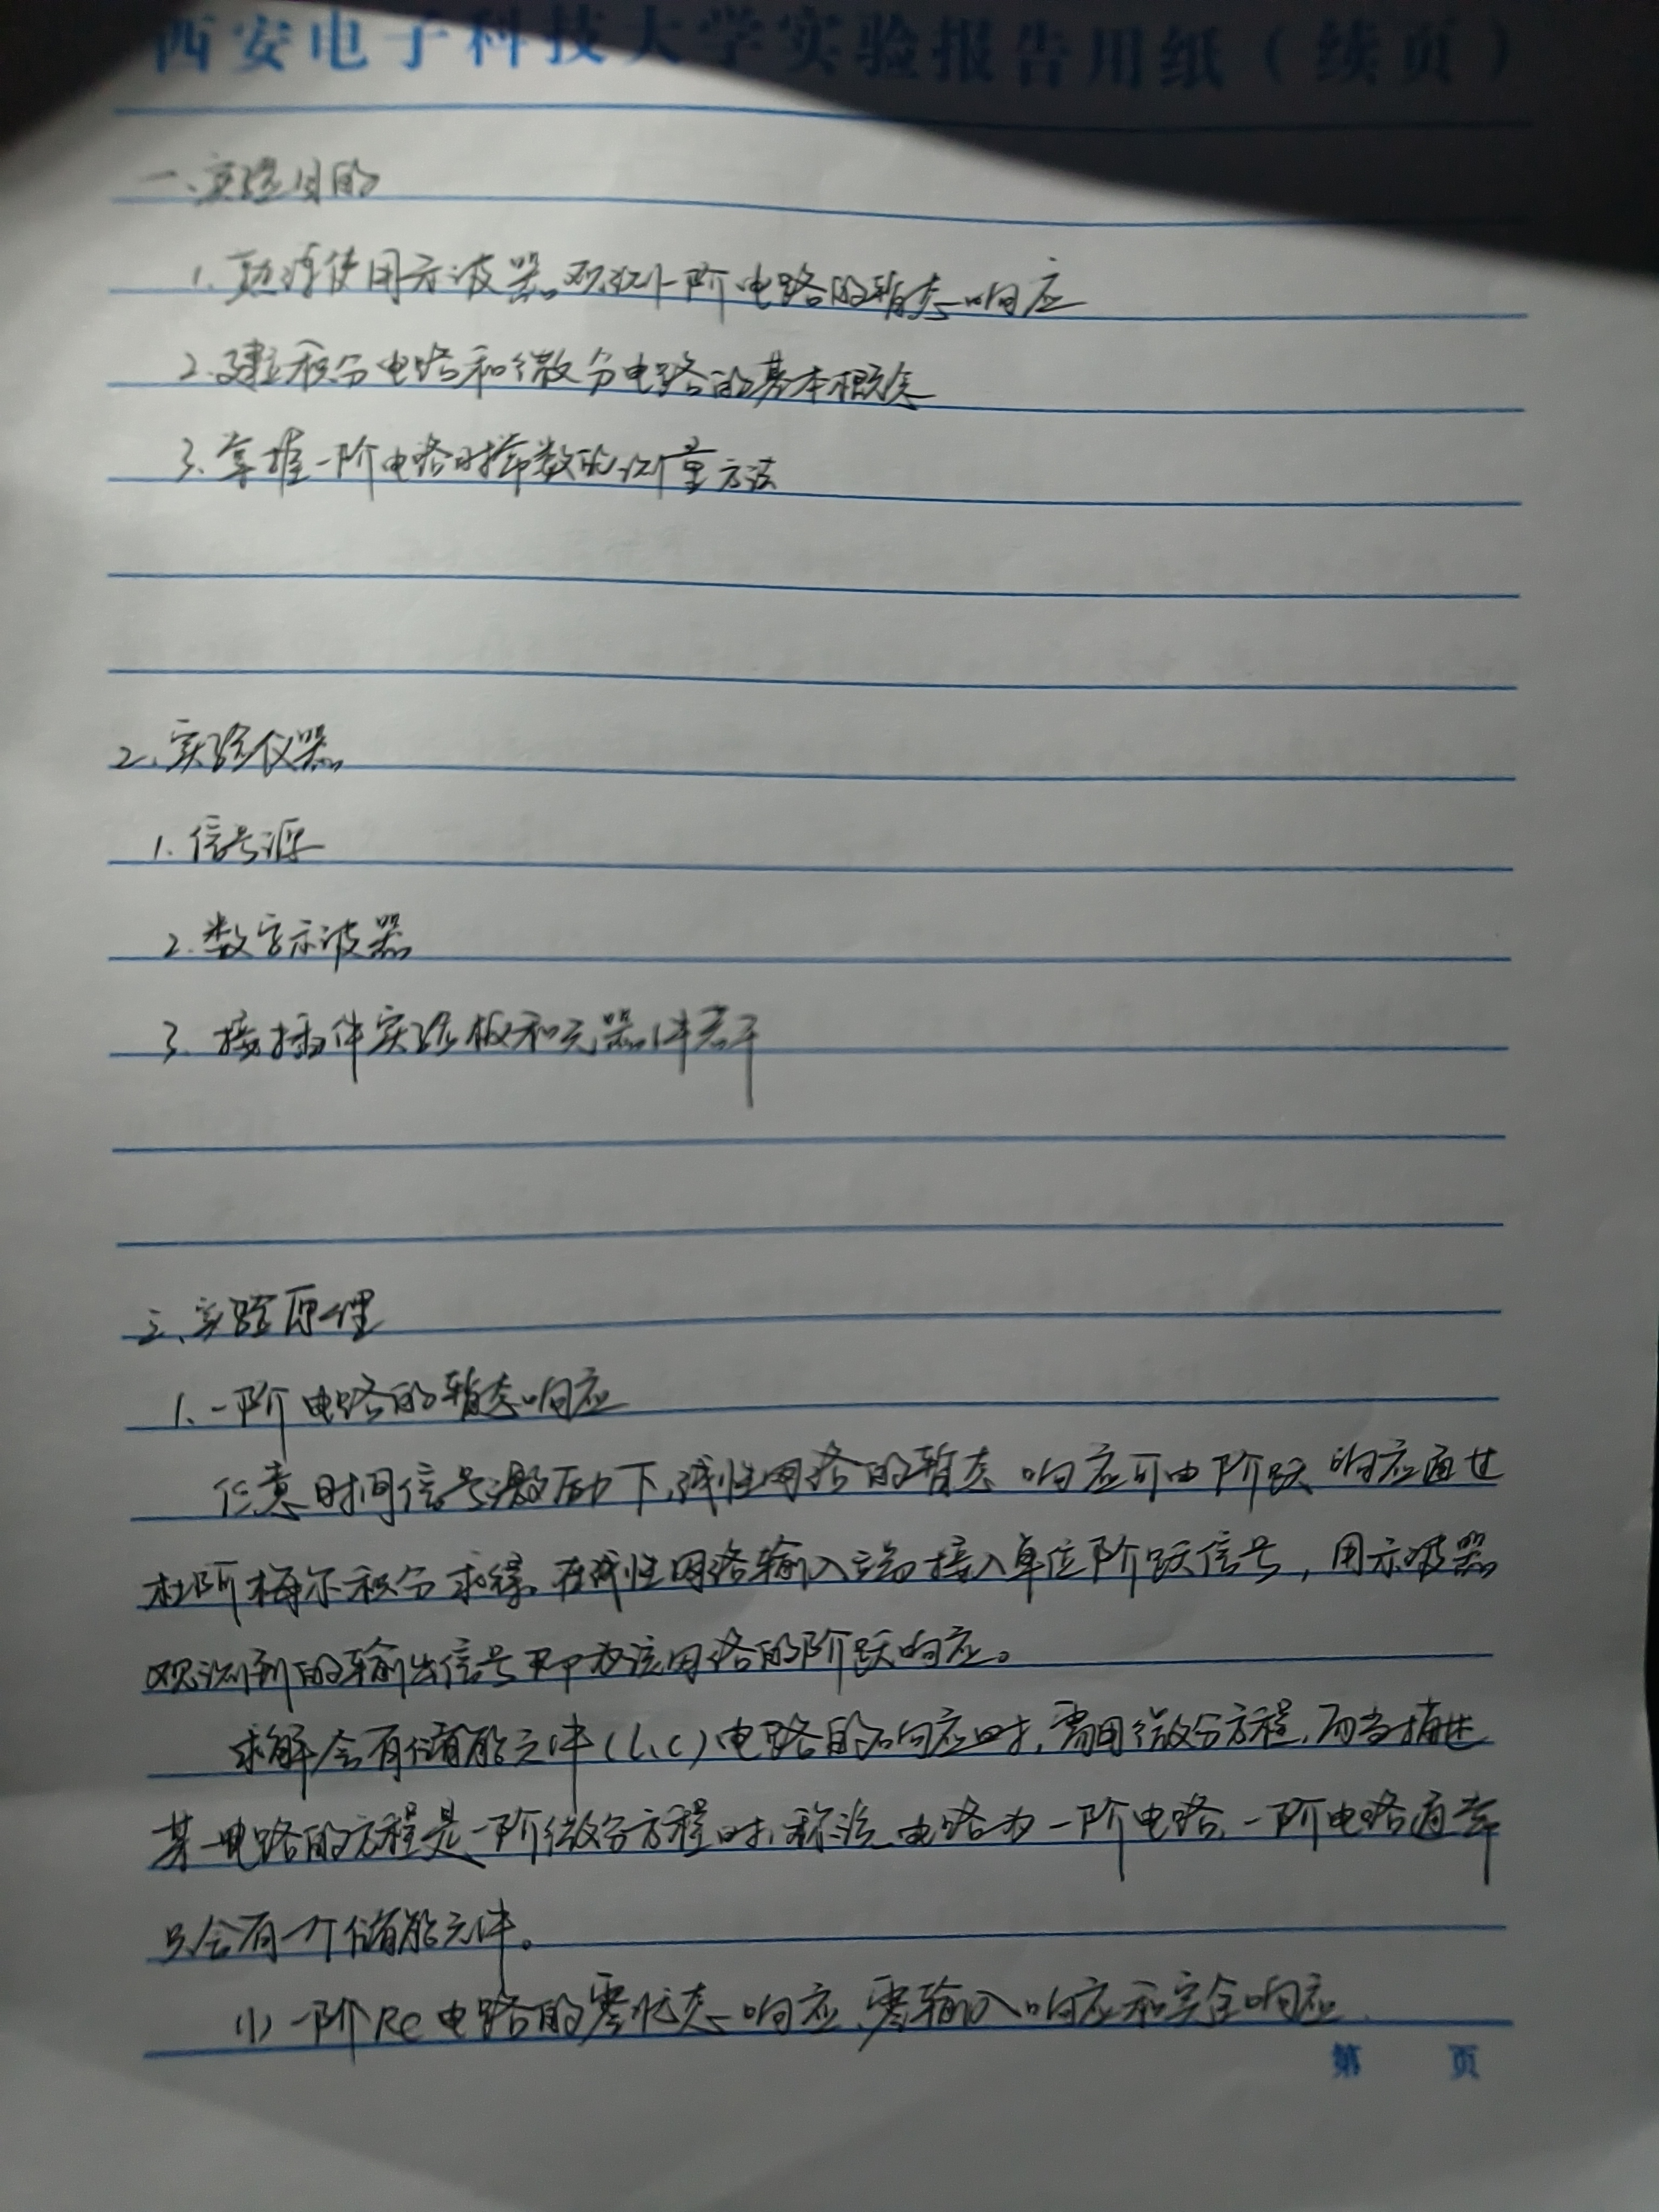 西安电子科技大学实验报告用纸（续页）
一、实验目的
1. 熟练使用示波器观测一阶电路的暂态响应
2. 建立积分电路和微分电路的基本概念
3. 掌握一阶电路时常数的测量方法
2、实验仪器
1. 信号源
2. 数字示波器
3. 接插件实验板和元器件若干
三、实验原理
1、一阶电路的暂态响应
任意时间信号激励下，线性网络的暂态响应可由阶跃响应通过
杜阿梅尔积分求得。在线性网络输入端接入单位阶跃信号，用示波器
观测到的输出信号即为该网络的阶跃响应。
求解含有储能元件(L、C)电路的响应时，需用微分方程，而当描述
某一电路的方程是一阶微分方程时，称该电路为一阶电路，一阶电路通常
只含有一个储能元件。
(1) 一阶RC电路的零状态响应、零输入响应和完全响应.
第 页